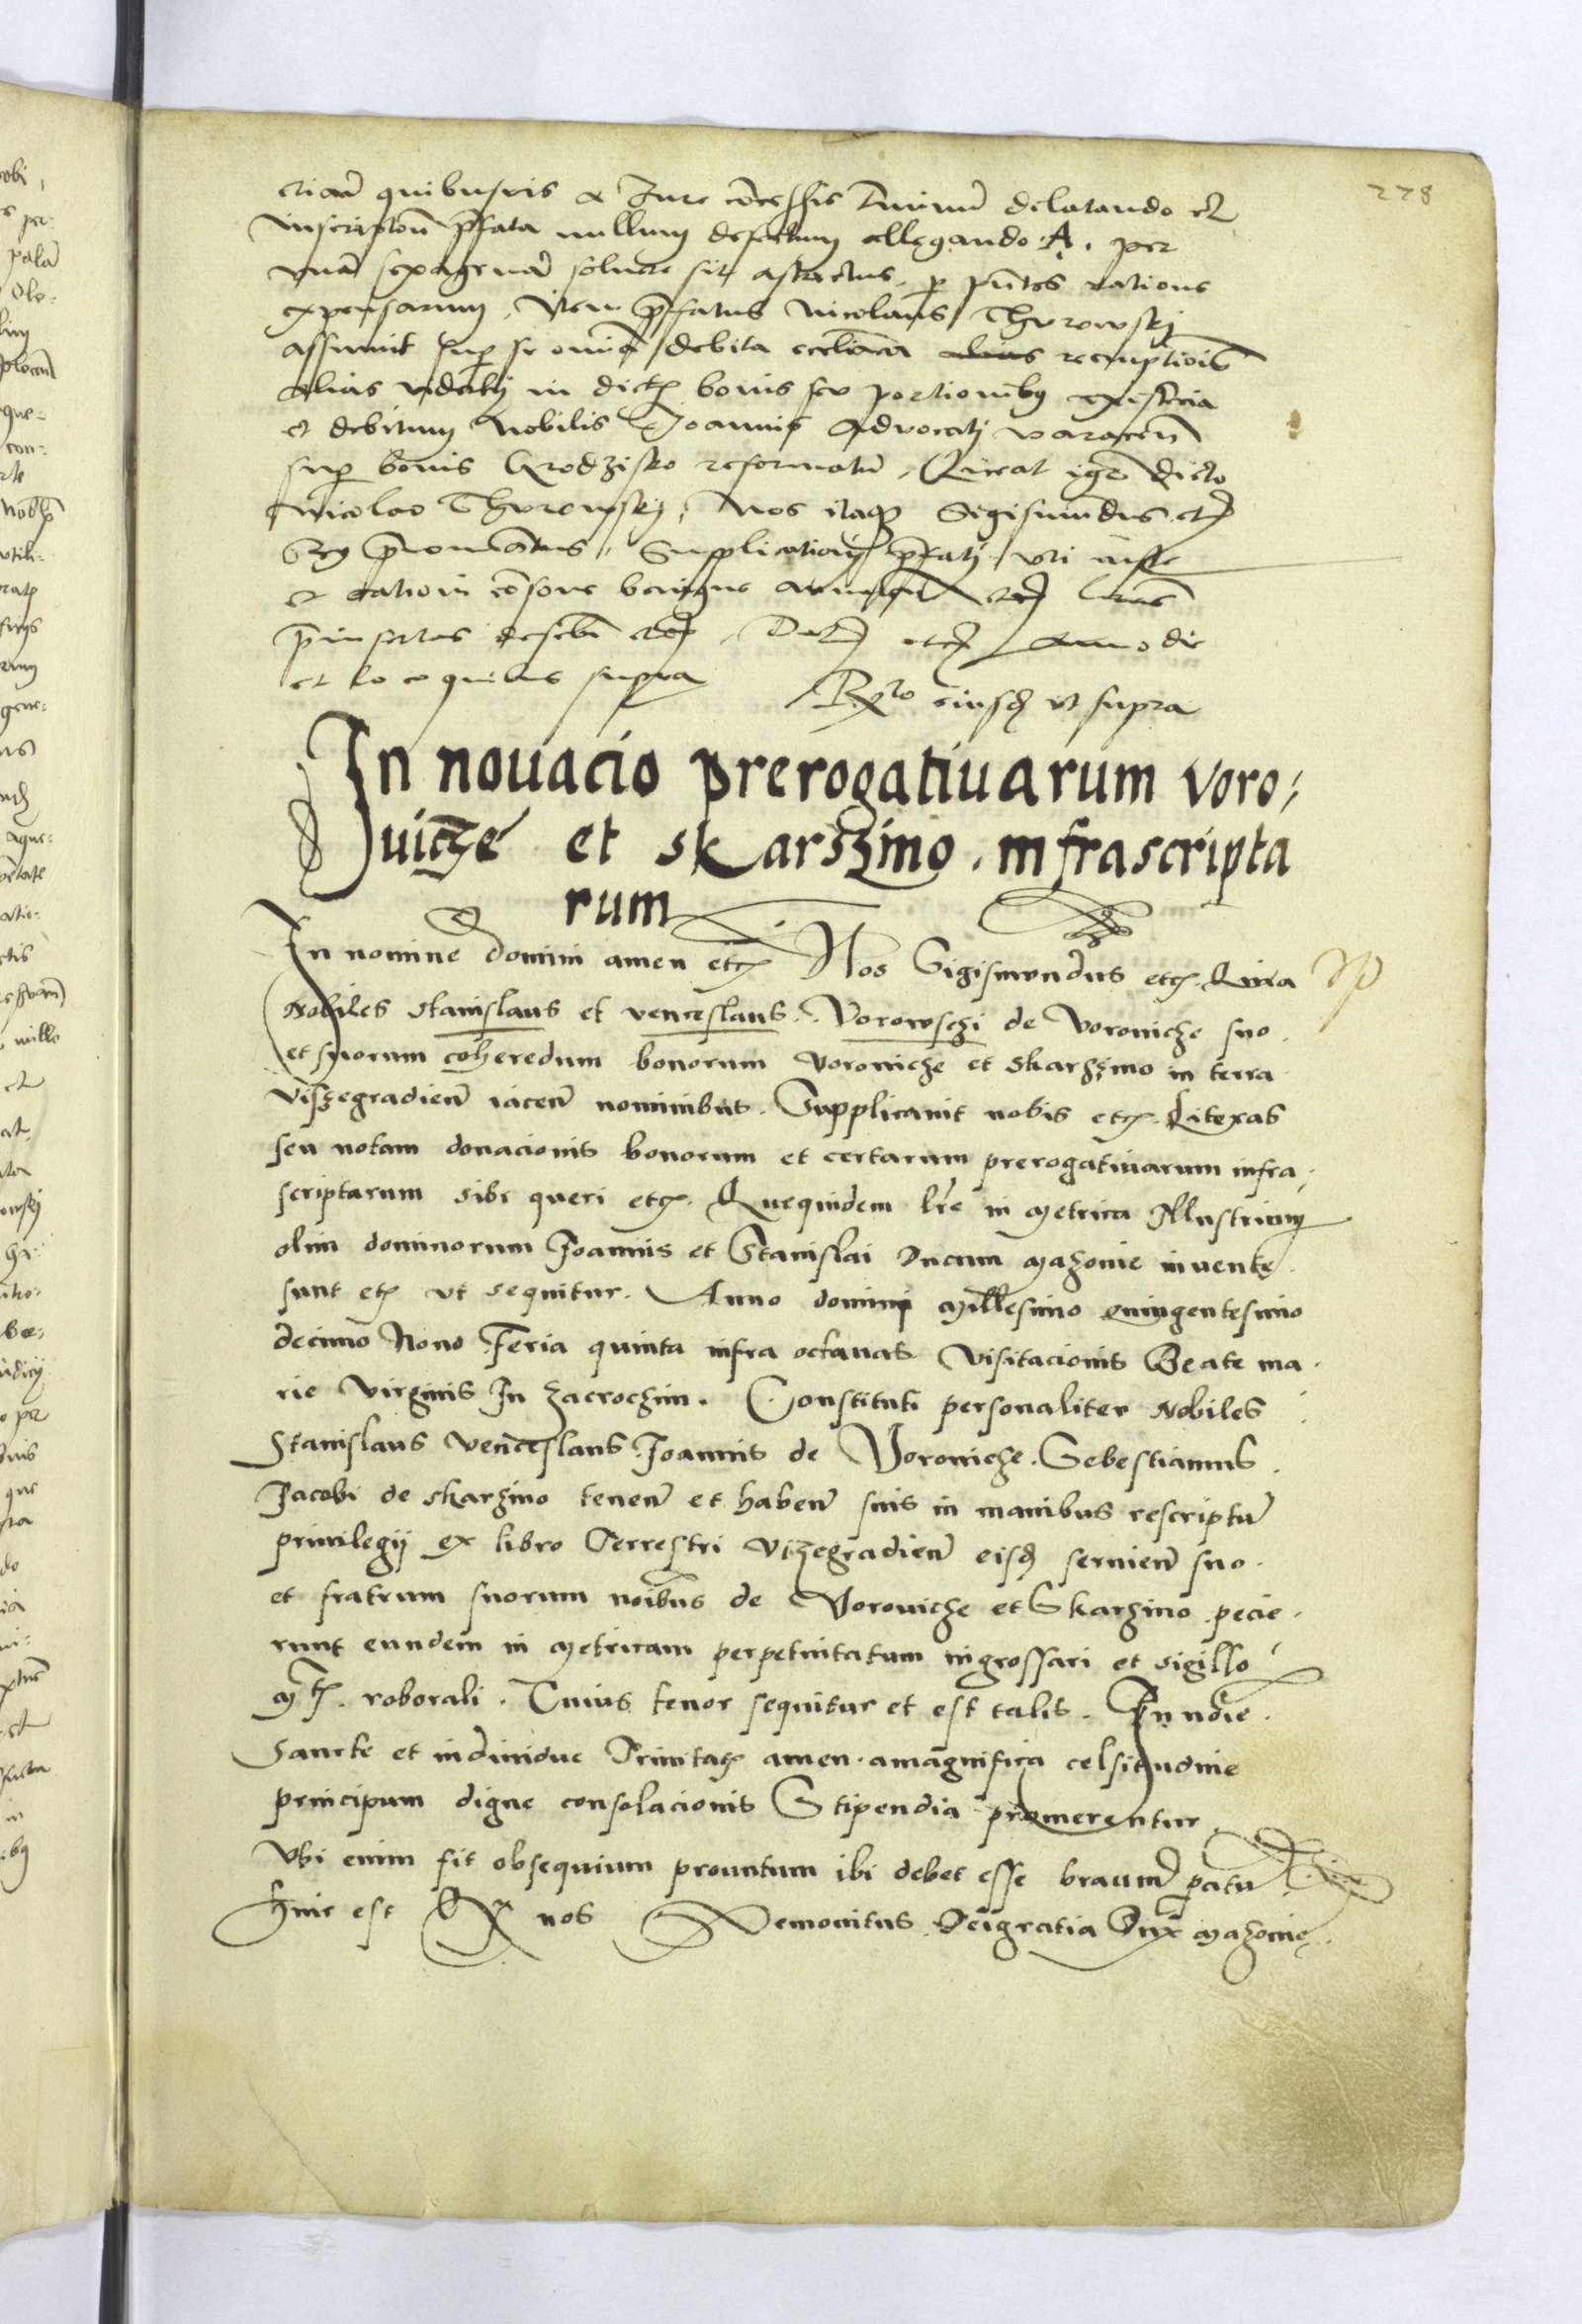 228
etiam quibusvis a Jure cõcessis Tminũ delatando et
inscriptoũ p̃fata nullum defectum allegando A. per
unã sexagenã soluere sit astrictus p p̃ntes ratione
expensarum, Item p̃fatus Nicolaus Thurowskj
assumit sup se omĩa debita reemptiois̃
alias vyderky in dict bonis seu portionibus existẽcia
et debitum Nobilis Joannis Advocatj
sup bonis Grodzisko reformatũ, dicto
Nicolao Thurowskj, Nos itaq Sigismundus etc
Rex p̃nominatus, Supplicationj p̃fatj uti iuste
et rationi cõsone benigne etc
p̃insertas etc Dat etc Anno die
et loco quibus supra Rlo eiusd ut supra
In nouacio prerogatiuarum Voro;
uicze et skarszino. infrascripta
rum
In nomine domini amen etc Nos Sigismundus etc. Quia
Nobiles Stanislaus et venceslaus. Vorowsczi de Vorouicze suo.
et suorum coheredum bonorum Vorouicze et Skarszino in terra
Viszegradien̄ iacen̄ nominibus. Supplicauit nobis etc. Literas
seu notam donacionis bonorum et certarum prerogatiuarum infra,
scriptarum sibi queri etc. Quequidem lr̃e in Metrica Illustrium
olim dominorum Joannis et Stanislai Ducum Mazouie inuente.
sunt etc ut sequitur. Anno domini Millesimo Quingentesimo
decimo Nono Feria quinta infra octauas Visitacionis Beate ma.
rie Virginis In Zacroczim. Constituti personaliter Nobiles
Stanislaus Venceslaus. Joannis de Vorouicze. Sebestianus.
Jacobi de Skarzino tenen̄ et haben̄ suis in manibus rescriptũ
priuilegij ex libro Terrestri Viszegradien̄ eisd seruien̄ suo.
et fratrum suorum noĩbus de Vorouicze et Skarzino pecie.
runt eundem in Metricam perpetuitatum ingrossari et sigillo
roborali. Cuius tenor sequitur et est talis. In noĩe.
Sancte et indiuidue Trinitatis amen. amagnifica celsitudine
principum digne consolacionis Stipendia promerentur
Vbi enim fit obsequium prountum ibi debet esse brauiũ patũ
Hinc est Qr nos Semouitus Deigratia Dux Mazouie.